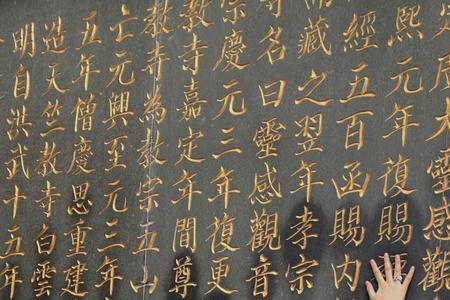 大靈感觀
熙元年復賜
經五百函賜内
藏之翌年孝宗
寺名曰靈感觀音
宗慶元三年復更
教寺嘉定年間尊
教寺為教宗五山
亡元興至元三年
五年僧慶思重建
造天竺教寺白雲
明自洪武十五年